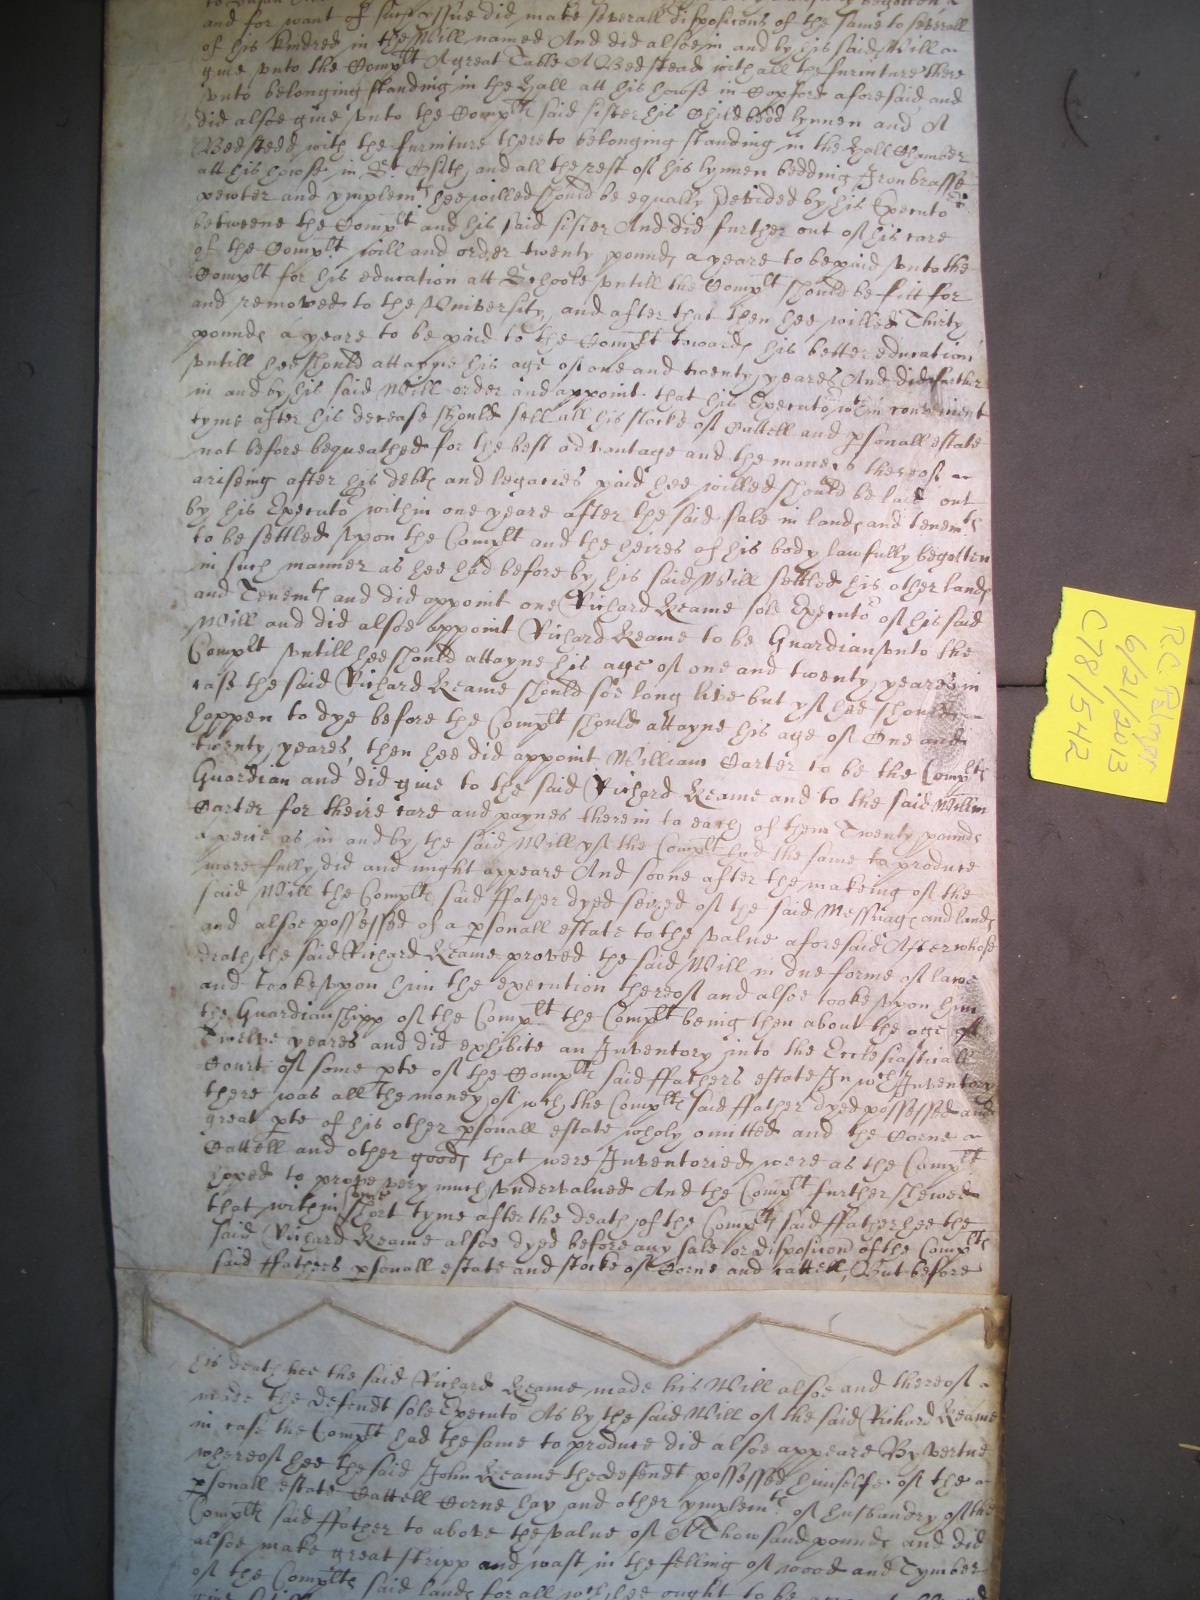 and for want of such yssue did make severall disposicons of the same to severall
of his kindred in the Will named And did alsoe in and by his said Will
give unto the Complt A great Table A Bedstead with all the furniture there
unto belonging standing in the Hall att his howse in aforesaid and
did alsoe give unto the Complts said sister his Childbedd lynnen and A
Bedsteed with the furniture thereto belonging standing in the Hall Chamber
att his howse in St Osith and all the rest of his lynnen bedding Iron brasse
pewter and ymplemts hee willed should be equally devided by his Executor
betweene the Complt and his said sister And did further out of his care
of the Complt will and order twenty pounds a yeare to be paid unto the
Complt for his education att Schoole untill the Complt should be fitt for
and removed to the University and after that then hee willed Thirty
pounds a yeare to be paid to the Complt towards his better education
untill hee should attayne his age of one and twenty yeares And did further
in and by his said Will order and appoint that his Executor wthin convenient
tyme after his decease should sell all his stocke of Cattell and psonall estate
not before bequeathed for the best advantage and the moneys thereof
ariseing after his debts and legacies paid hee willed should be laid out
by his Executor within one yeare after the said sale in lands and tenemts
to be settled upon the Complt and the heires of his body lawfully begotten
in such manner as hee had before by his said Will settled his other lands
and Tenemts and did appoint one Richard Reame sole Executor of his said
Will and did alsoe appoint Richard Reame to be Guardian unto the
Complt untill hee should attayne his age of one and twenty yeares in
case the said Richard Reame should soe long live but yf hee should
happen to dye before the Complt should attayne his age of One and
twenty yeares then hee did appoint William Carter to be the Complts
Guardian and did give to the said Richard Reame and to the said Willm
Carter for theire care and paynes therein to each of them Twenty pounds
a peice as in and by the said Will yf the Complt had the same to produce
more fully did and might appeare And soone after the makeing of the
said Will the Complts said ffather dyed seized of the said Messuage and lands
and alsoe possessed of a psonall estate to the value aforesaid After whose
death the said Richard Reame proved the said Will in due forme of lawe
and tooke upon him the execution thereof and alsoe tooke upon him
the Guardianshipp of the Complt the Complt being then about the age of
Twelve yeares and did exhibite an Inventory into the Ecclesiasticall
Court of some pte of the Complts said ffathers estate In wch Inventory
there was all the money of wch the Complts said ffather dyed possessed and
great pte of his other psonall estate wholy omitted and the Corne
Cattell and other goods that were Inventoried were as the Complt
hoped to prove very much undervalued And the Complt further shewed
that within some short tyme after the death of the Complts said ffather hee the
said Richard Reame alsoe dyed before any sale or disposicon of the Complts
said ffathers psonall estate and stocke of Corne and cattell, But before
his death hee the said Richard Reame made his Will alsoe and thereof
made the defendt sole Executor As by the said Will of the said Richard Reame
in case the Complt had the same to produce did alsoe appeare By vertue
whereof hee the said John Reame the defendt possessed himselfe of the
psonall estate Cattell Corne hay and other ymplemts of husbandry of the
Complts said ffather to above the value of A Thowsand pounds and did
alsoe make great stripp and wast in the felling of wood and Tymber
of the Complts said lands for all wch hee ought to be
R.C. Palmer
6/21/2013
C78/542